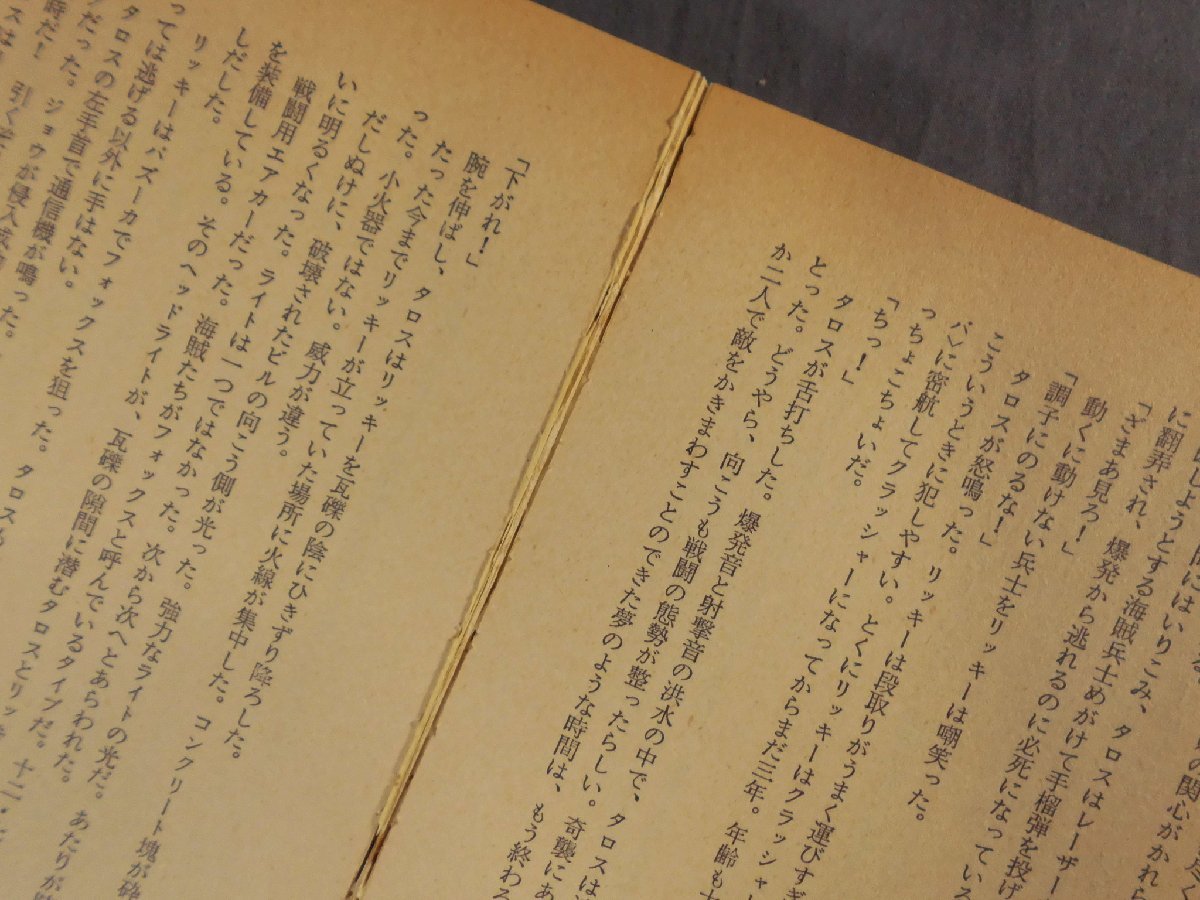 の関心がかれら
に翻弄され、爆発から逃れるのに必死になっている
しようとする海賊兵士めがけて手榴弾を投げ
「ざまあ見ろ！」
動くに動けない兵士をリッキーは嘲笑った。
「調子にのるな！」
タロスが怒鳴った。リッキーは段取りがうまく運びすぎ
こういうときに犯しやすい。とくにリッキーはクラッシャー
バ〉に密航してクラッシャーになってからまだ三年。年齢も十
っちょこちょいだ。
「ちっ！」
タロスが舌打ちした。爆発音と射撃音の洪水の中で、タロスは
とった。どうやら、向こうも戦闘の態勢が整ったらしい。奇襲にあ
か二人で敵をかきまわすことのできた夢のような時間は、もう終わろ
「下がれ！」
腕を伸ばし、タロスはリッキーを瓦礫の陰にひきずり降ろした。
たった今までリッキーが立っていた場所に火線が集中した。コンクリート塊が砕
った。小火器ではない。威力が違う。
だしぬけに、破壊されたビルの向こう側が光った。強力なライトの光だ。あたりが
いに明るくなった。ライトは一つではなかった。次から次へとあらわれた。
戦闘用エアカーだった。海賊たちがフォックスと呼んでいるタイプだ。十二
を装備している。そのヘッドライトが、瓦礫の隙間に潜むタロスとリッキ
しだした。
リッキーはバズーカでフォックスを狙った。タロスも
っては逃げる以外に手はない。
タロスの左手首で通信機が鳴った。
だった。ジョウが侵入成
時だ！　引く